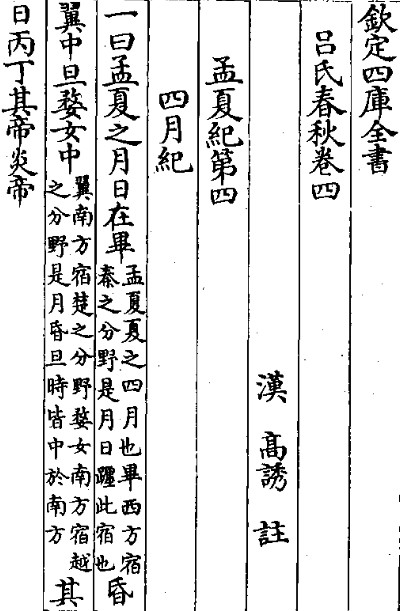 欽定四庫全書
呂氏春秋卷四
漢　高誘　註
孟夏紀第四
四月紀
一曰孟夏之月日在畢孟夏夏之四月也畢西方宿秦之分野是月日躔此宿也昏
翼中旦婺女中翼南方宿楚之分野婺女南方宿越之分野是月昏旦時皆中於南方其
日丙丁其帝炎帝